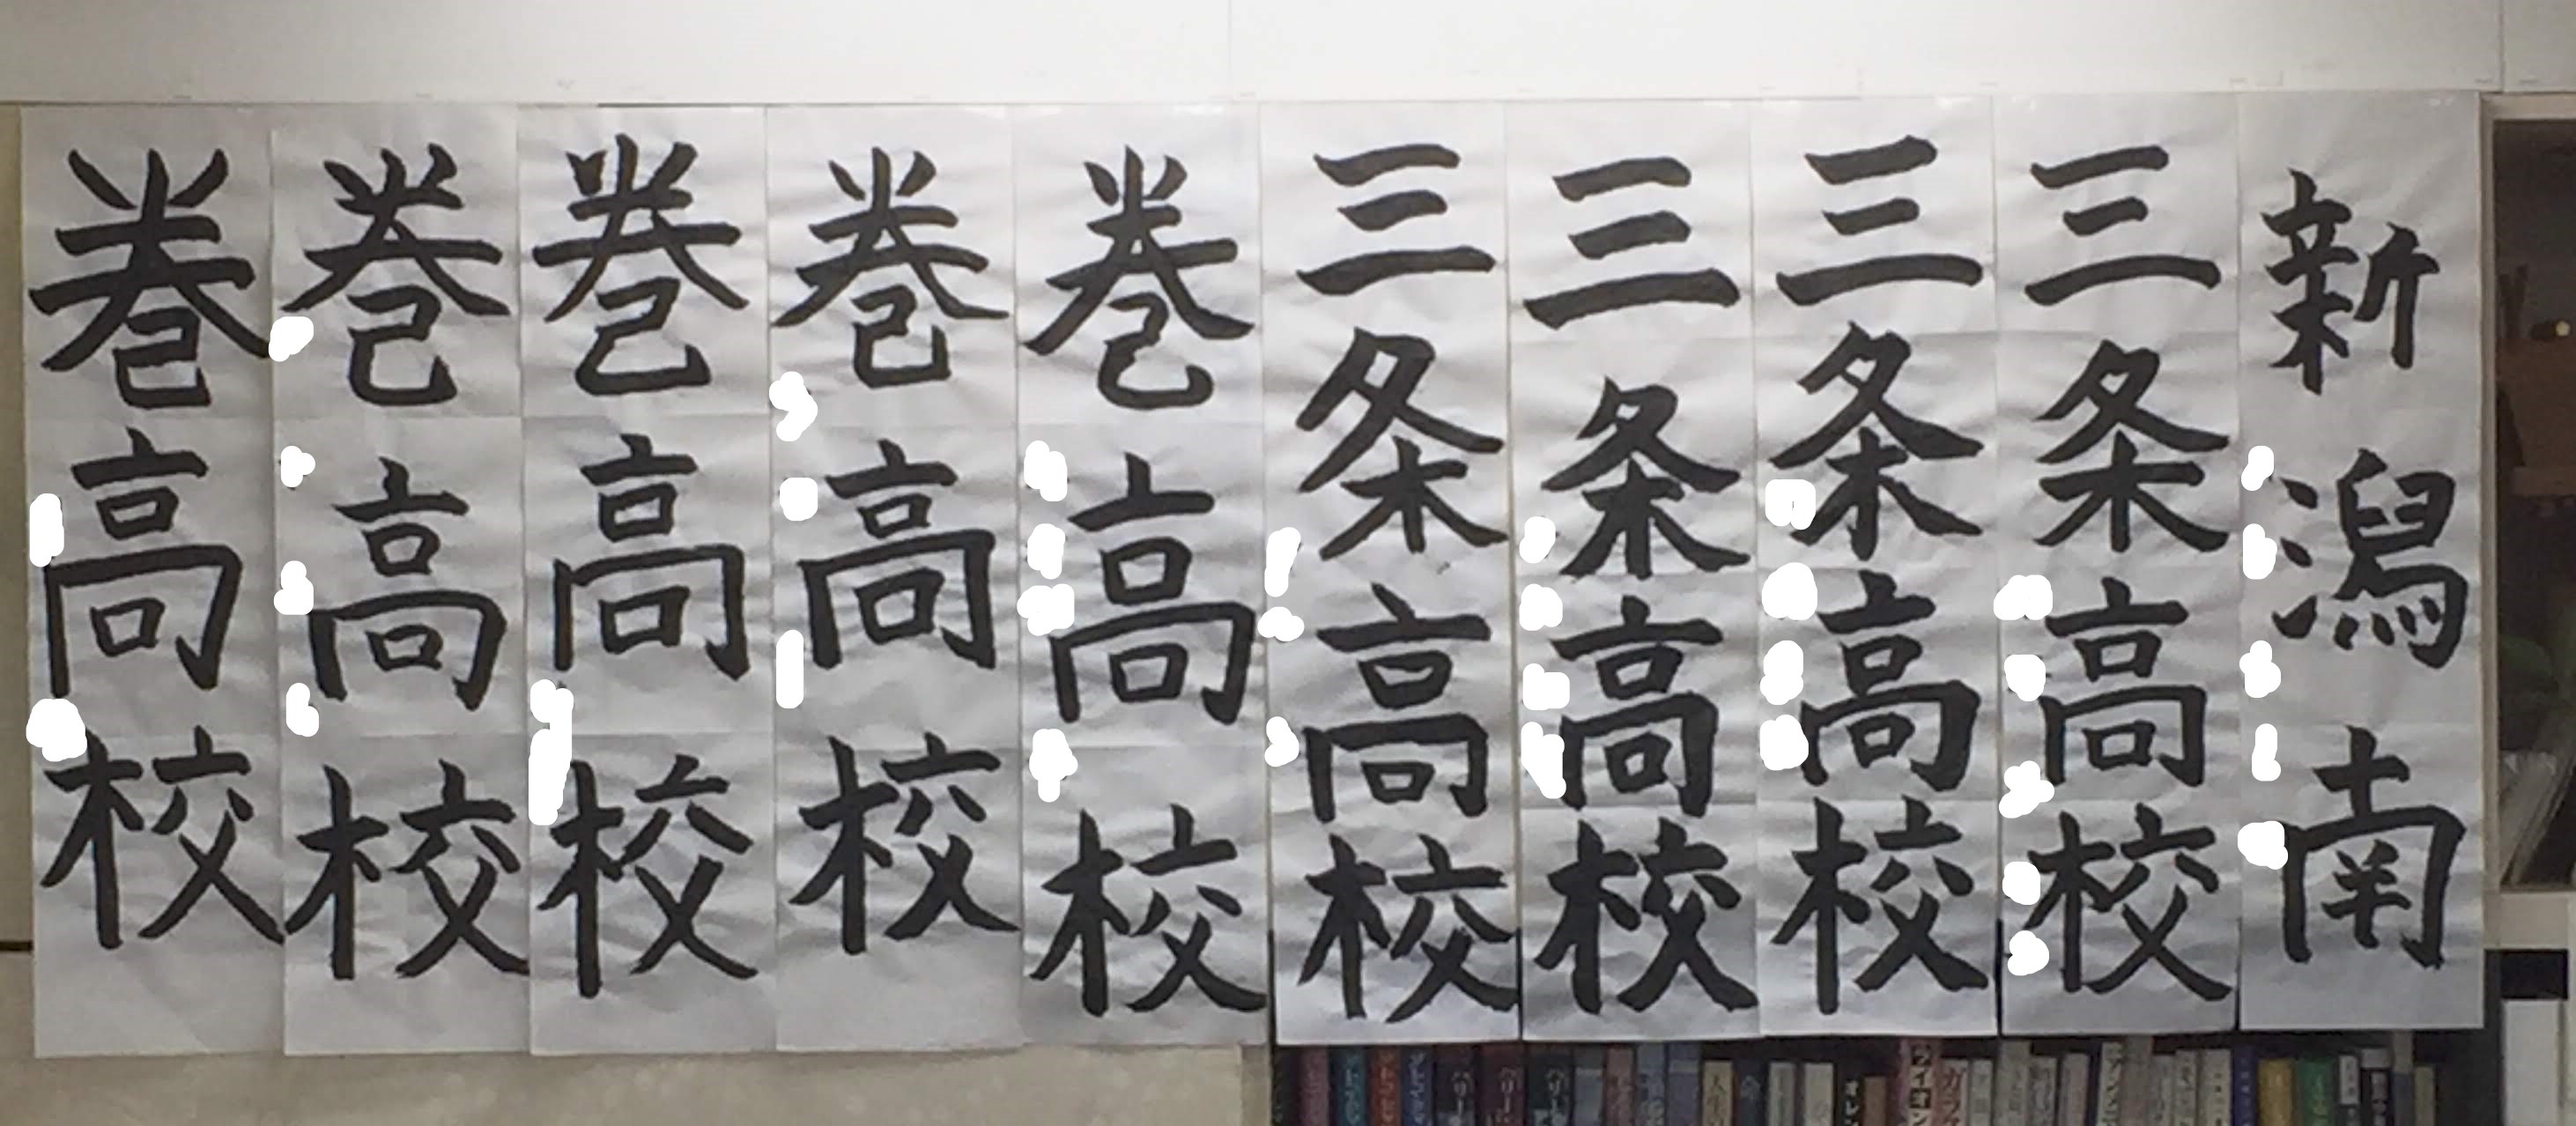 新潟南
三条高校
三条高校
三条高校
三条高校
巻高校
巻高校
巻高校
巻高校
巻高校